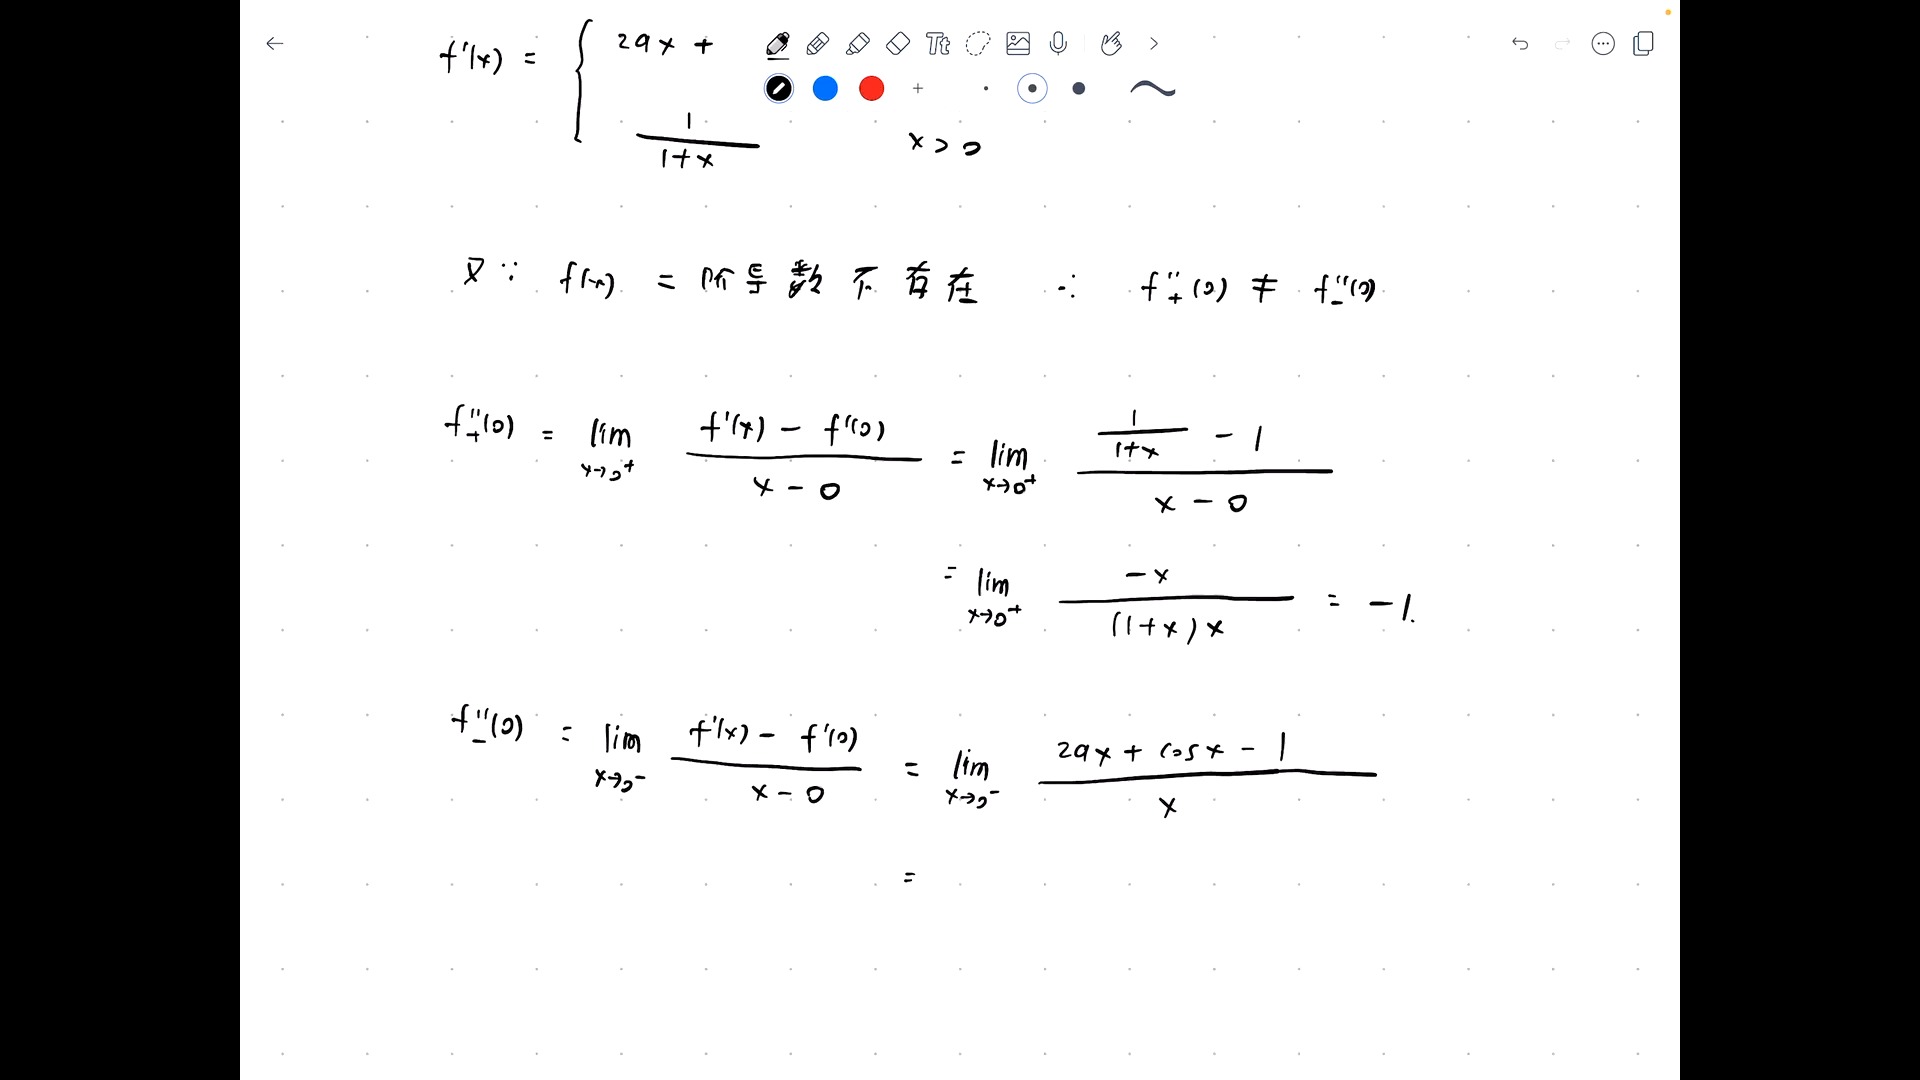 f'(x) = { 2ax +
1/(1+x) x > 0
又∵ f(x) 二阶导数不存在 ∴ f''₊(0) ≠ f''₋(0)
f''₊(0) = lim_{x→0⁺} (f'(x) - f'(0))/(x - 0) = lim_{x→0⁺} (1/(1+x) - 1)/(x - 0)
= lim_{x→0⁺} -x/((1+x)x) = -1.
f''₋(0) = lim_{x→0⁻} (f'(x) - f'(0))/(x - 0) = lim_{x→0⁻} (2ax + cosx - 1)/x
=